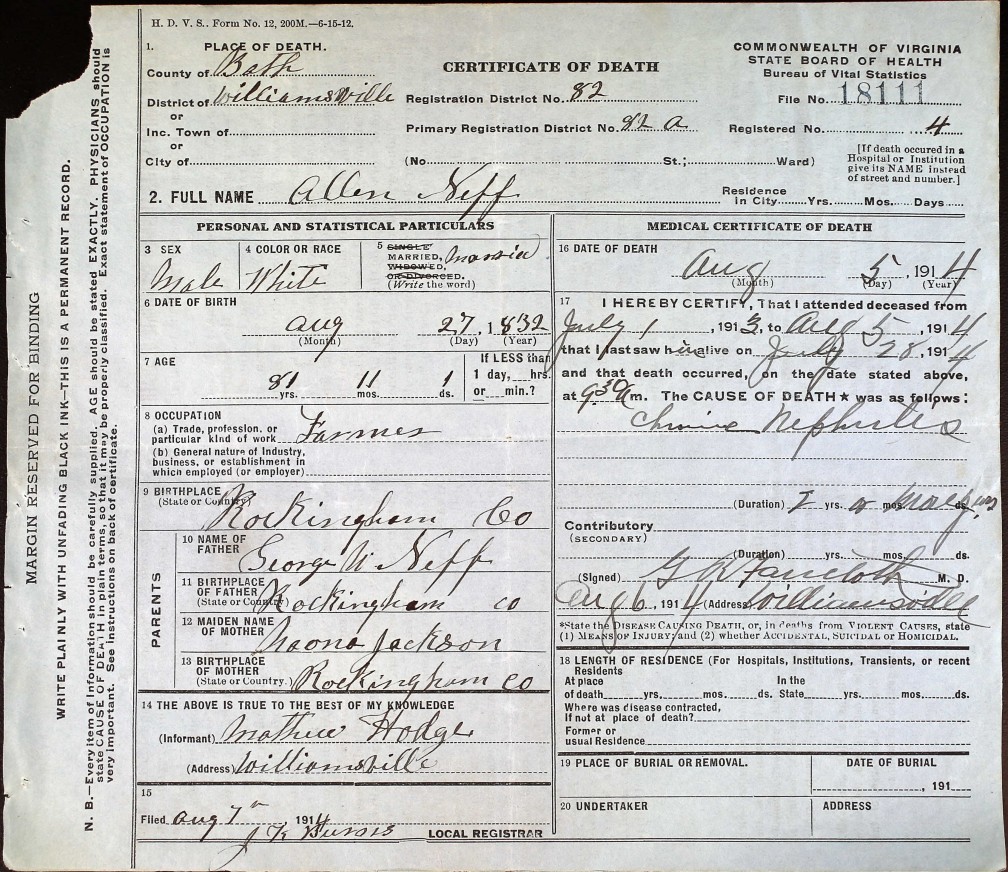 H. D. V. S.. Form No. 12, 200M.—6-15-12.
1. PLACE OF DEATH.
County of Bath
District of Williamsville
or
Inc. Town of
or
City of
CERTIFICATE OF DEATH
Registration District No. 82
Primary Registration District No. 82 a
(No. St.; Ward)
COMMONWEALTH OF VIRGINIA
STATE BOARD OF HEALTH
Bureau of Vital Statistics
File No. 18111
Registered No. 4
[If death occured in a
Hospital or Institution
give its NAME instead
of street and number.]
2. FULL NAME Allen Neff
Residence
in City Yrs. Mos. Days
PERSONAL AND STATISTICAL PARTICULARS
3 SEX
Male
4 COLOR OR RACE
White
5 SINGLE
MARRIED,
WIDOWED,
OR DIVORCED.
(Write the word)
Married
6 DATE OF BIRTH
Aug 27, 1832
(Month) (Day) (Year)
7 AGE
81 yrs. 11 mos. 1 ds.
If LESS than
1 day, hrs.
or min.?
8 OCCUPATION
(a) Trade, profession, or
particular kind of work Farmer
(b) General nature of Industry,
business, or establishment in
which employed (or employer)
9 BIRTHPLACE
(State or Country)
Rockingham Co
PARENTS
10 NAME OF
FATHER
George W Neff
11 BIRTHPLACE
OF FATHER
(State or Country)
Rockingham Co
12 MAIDEN NAME
OF MOTHER
Naona Jackson
13 BIRTHPLACE
OF MOTHER
(State or Country.)
Rockingham Co
14 THE ABOVE IS TRUE TO THE BEST OF MY KNOWLEDGE
(Informant) Mathew Hodge
(Address) Williamsville
15
Filed Aug 7th, 1914
LOCAL REGISTRAR
MEDICAL CERTIFICATE OF DEATH
16 DATE OF DEATH
Aug 5, 1914
(Month) (Day) (Year)
17 I HEREBY CERTIFY, That I attended deceased from
July 1, 1913, to Aug 5, 1914
that I last saw him alive on July 28, 1914
and that death occurred, on the date stated above,
at 9 30 a m. The CAUSE OF DEATH★ was as follows:
Chronic Nephritis
(Duration) yrs. mos. ds.
Contributory
(SECONDARY)
(Duration) yrs. mos. ds.
(Signed) M. D.
Aug 6, 1914 (Address) Williamsville
*State the DISEASE CAUSING DEATH, or, in deaths from VIOLENT CAUSES, state
(1) MEANS OF INJURY; and (2) whether ACCIDENTAL, SUICIDAL or HOMICIDAL.
18 LENGTH OF RESIDENCE (For Hospitals, Institutions, Transients, or recent
Residents
At place In the
of death yrs. mos. ds. State yrs. mos. ds.
Where was disease contracted,
If not at place of death?
Former or
usual Residence
19 PLACE OF BURIAL OR REMOVAL.
DATE OF BURIAL
, 191
20 UNDERTAKER
ADDRESS
MARGIN RESERVED FOR BINDING
WRITE PLAINLY WITH UNFADING BLACK INK—THIS IS A PERMANENT RECORD.
N. B.—Every item of Information should be carefully supplied. AGE should be stated EXACTLY. PHYSICIANS should
state CAUSE OF DEATH in plain terms, so that it may be properly classified. Exact statement of OCCUPATION is
very important. See instructions on back of certificate.